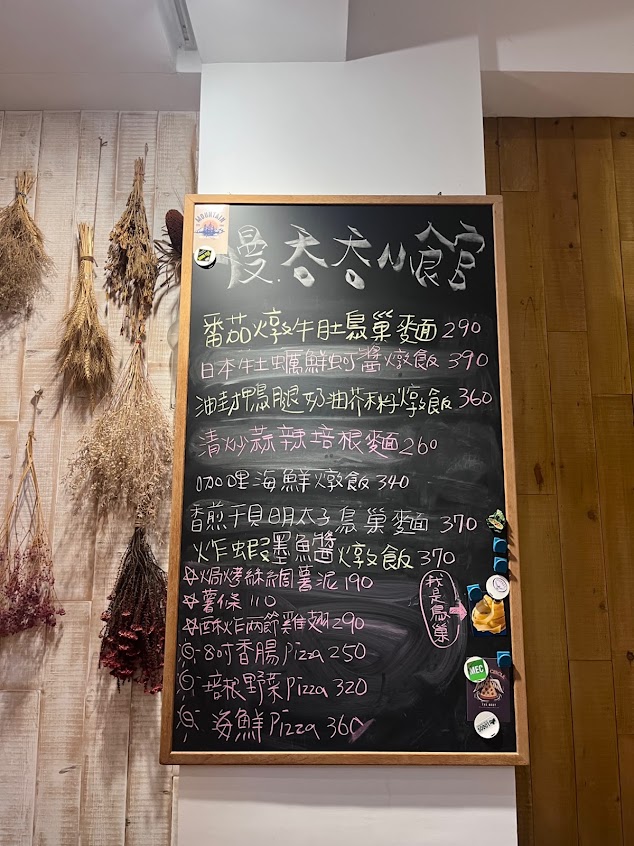 MOUNTAIN
慢.吞吞小食官
番茄燉牛肚鳥巢麵 290
日本牡蠣鮮蚵醬燉飯 390
油封鴨腿奶油芥籽燉飯 360
清炒蒜辣培根麵 260
咖哩海鮮燉飯 340
香煎干貝明太子鳥巢麵 370
炸蝦墨魚醬燉飯 370
焗烤絲綢薯泥 190
薯條 110
酥炸兩節雞翅 290
8吋香腸 Pizza 250
培根野菜 Pizza 320
海鮮 Pizza 360
我是鳥巢
MEC